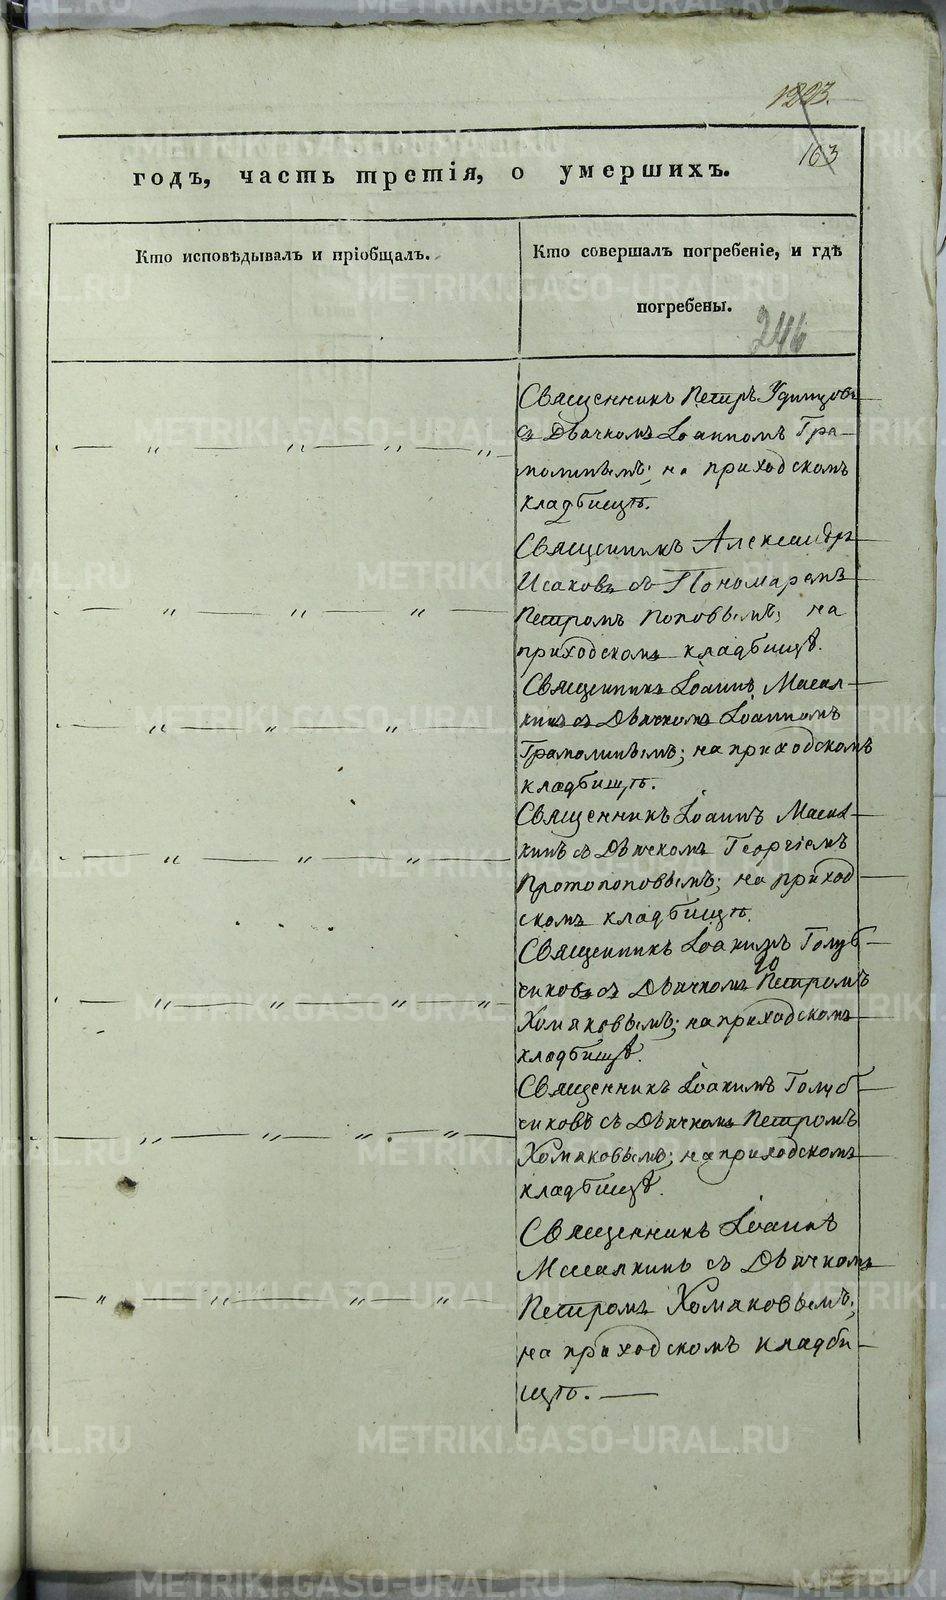 1223.
163
годъ, часть третія, о умершихъ.
Кто исповѣдывалъ и пріобщалъ.
Кто совершалъ погребеніе, и гдѣ
погребены.
246
Священникъ Петръ Удинцовъ
съ Дьячкомъ Іоанномъ Гра-
молинымъ; на приходскомъ
кладбищѣ.
Священникъ Александръ
Исаковъ съ Пономаремъ
Петромъ Поповымъ; на
приходскомъ кладбищѣ.
Священникъ Іоаннъ Масал-
кинъ съ Дьячкомъ Іоанномъ
Грамолинымъ; на приходскомъ
кладбищѣ.
Священникъ Іоаннъ Масал-
кинъ съ Дьячкомъ Георгіемъ
Протопоповымъ; на приход
скомъ кладбищѣ.
Священникъ Іоакимъ Голуб-
чиковъ съ Дьячкомъ Петромъ
Хомяковымъ; на приходскомъ
кладбищѣ.
Священникъ Іоакимъ Голуб-
чиковъ съ Дьячкомъ Петромъ
Хомяковымъ; на приходскомъ
кладбищѣ.
Священникъ Іоаннъ
Масалкинъ съ Дьячкомъ
Петромъ Хомяковымъ;
на приходскомъ кладби-
щѣ.
METRIKI.GASO-URAL.RU